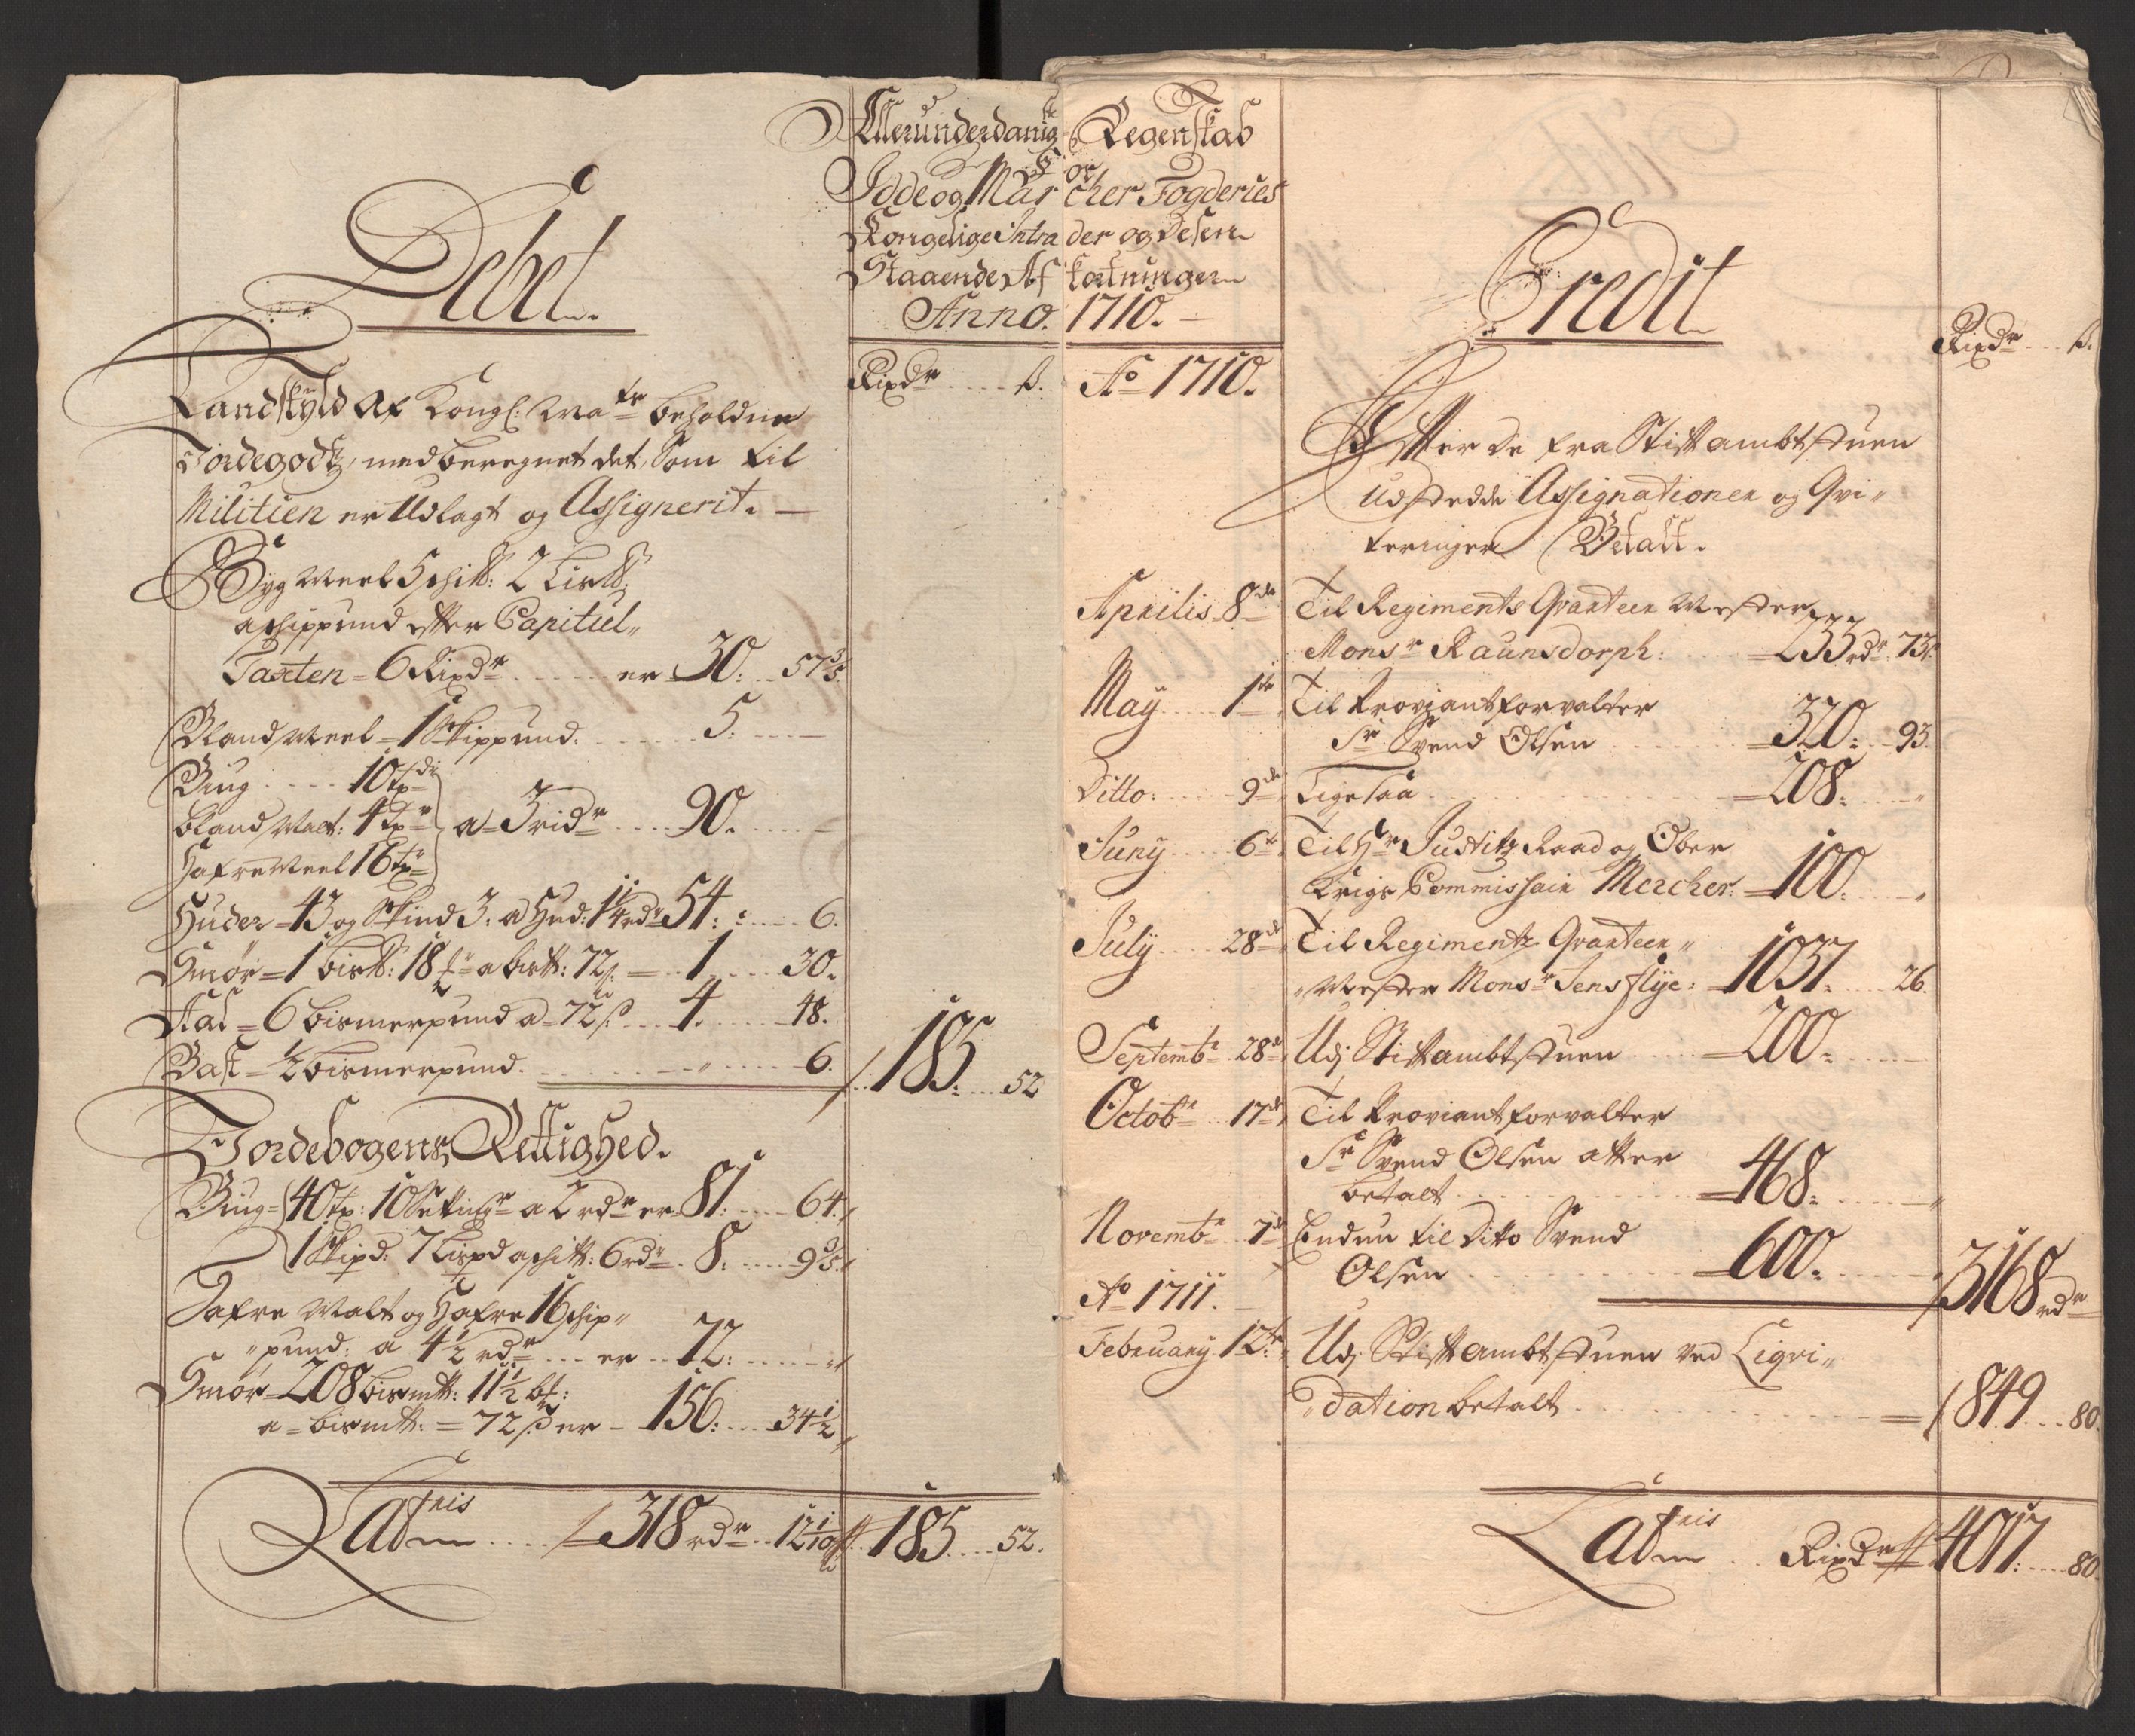 Allerunderdanigste Regenskab
Over
Idde og Marcher Fogderies
Kongelige Intrader og Desen
Staaende Afkortninger
Anno. 1710.
Debet.
Rixdr ß.
Landskyld Af Kongl: Mayts beholdene
Jordegodtz, medberegnet det, Som til
Militien er Udlagt og Assignerit.
Byg Meel 5 schip℔: 2 Lis℔:
a schippund efter Capitul„
Taxten = 6 Rixdr er 30: 57 3/5.
Bland Meel = 1 Skippund. 5:
Biug 10 tdr
bland Malt: 4 tdr a = 3 ridr 90.
Hafre Meel 16 tdr
Huder = 43 og Skind 3: a Hud: 1 1/4 rdr 54: 6.
Smør = 1 bis℔: 18 a bis℔: 72 ß: 1 30.
Aal = 6 bismerpund a = 72 ß 4. 48.
Bast = 1/2 bismerpund. 6.
185: 52
Jordebogens Rettighed.
Biug = 40 td: 10 Settingr a 2 rdr er 81: 64.
1 Skipd: 7 Lispd a schi℔: 6 rdr 8: 9 3/5.
Hafre Malt og Hafre 16 schip„
„pund: a 4 1/2 rdr er 72:
Smør 208 bism℔: 11 1/2 :
a = bism℔: = 72 ß er - 156: 34 1/2
Lateris 318 rdr 12 1/10 185 52.
Credit
Rixdr ß.
Ao 1710.
Efter de fra Stiftambtstuen
Udstedde Assignationer og Qvi„
teringer Betalt.
Aprilis 8de Til Regiments Qvarteer Mester
Monsr Raunsdorph: 233 rdr 73ß
May 1te Til Proviantforvalter
Sr Svend Olsen 320: 93.
Ditto: 9de Ligesaa 208:
Juny 6te Til Hr Justitz Raad og Ober
Krigs Commissair Mercher: 100:
July 28de Til Regimentz Qvarteer„
„Mester Monsr Jens Flye: 1037. 26.
Septembr 28de Udj Stiftambtstuen 200:
Octobr 17de Til Proviantforvalter
Sr Svend Olsen atter
betalt 468:
Novembr 7de Endnu til Ditto Svend
Olsen 600: 3168 rdr
Ao 1711.
February 12te Udj Stiftambtstuen ved Liqvi„
„dation betalt 849 80.
Lateris Rixdr 4017: 80.